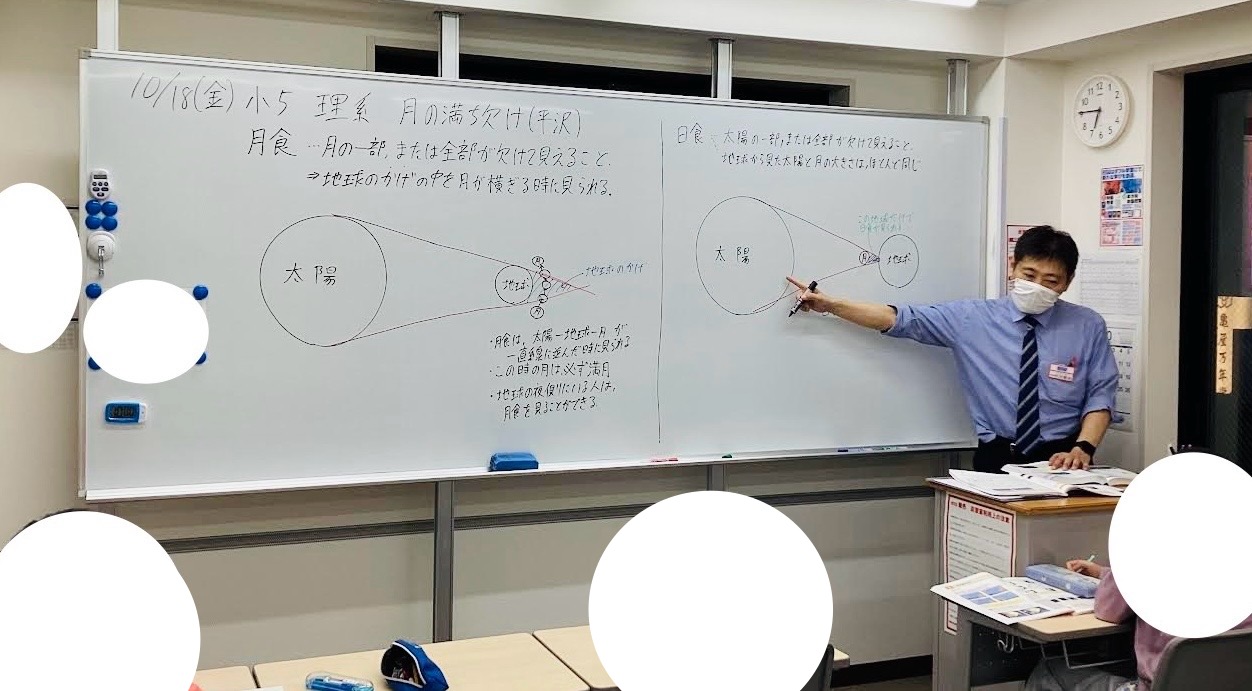 10/18(金) 小5 理系 月の満ち欠け(平沢)
月食 …月の一部,または全部が欠けて見えること.
⇒地球のかげの中を月が横ぎる時に見られる.
太陽
地球
月
月
地球のかげ
・月食は、太陽ー地球ー月 が
一直線に並んだ時に見られる
・この時の月は必ず満月
・地球の夜側にいる人は,
月食を見ることができる.
日食… 太陽の一部,または全部が欠けて見えること.
地球から見た太陽と月の大きさは,ほとんど同じ
この地球だけで
日食が見られる
太陽
月
地球
亀屋万年堂